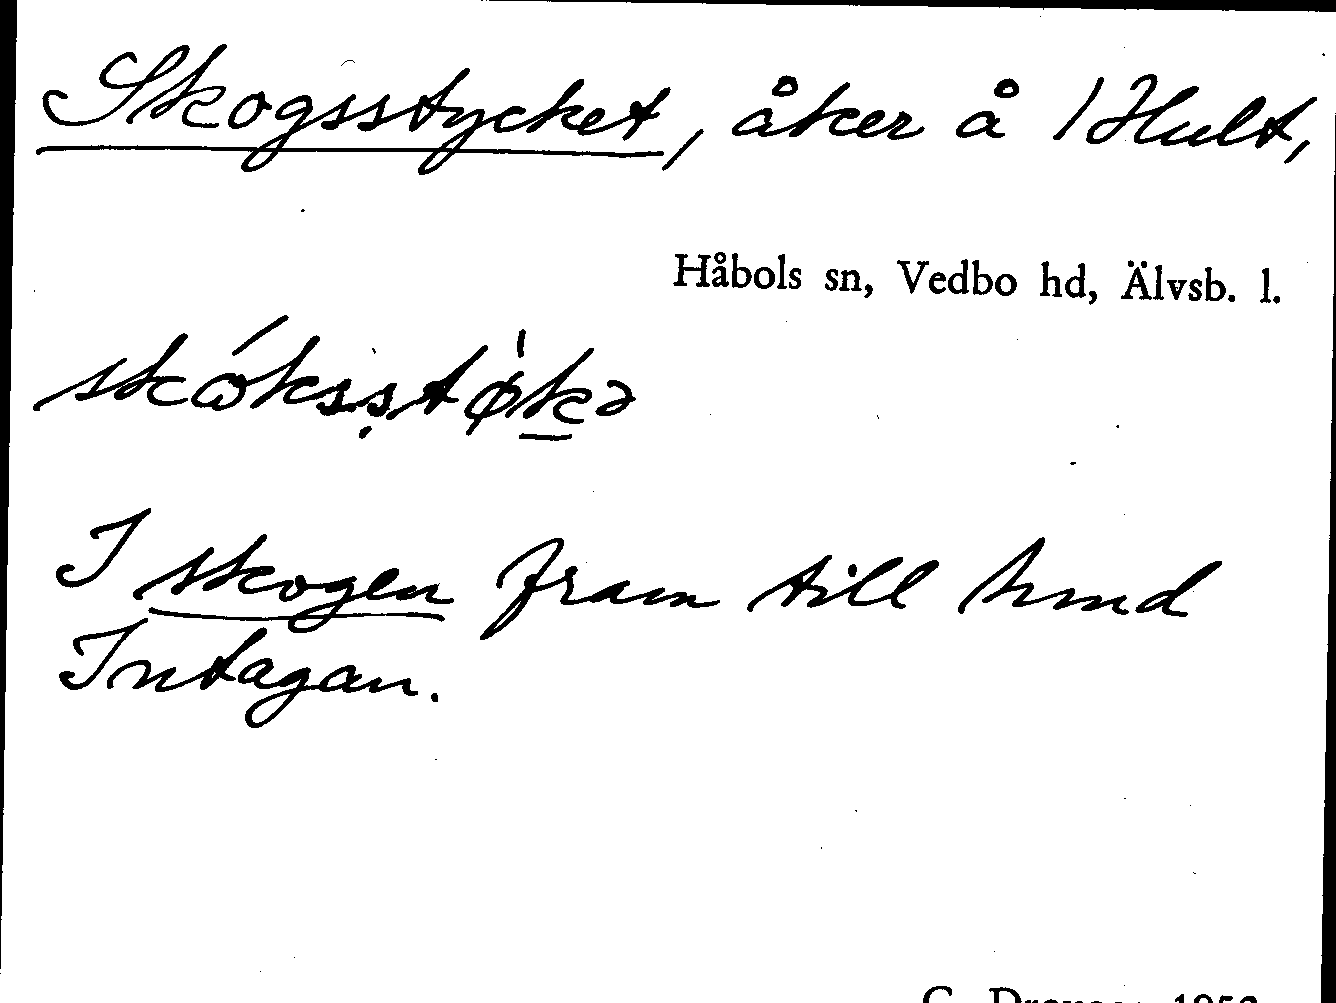 Skogsstycket, åker å 1 Hult,
Håbols sn, Vedbo hd, Älvsb. l.
skóksstø̍kə
I skogen fram till
Intagan.